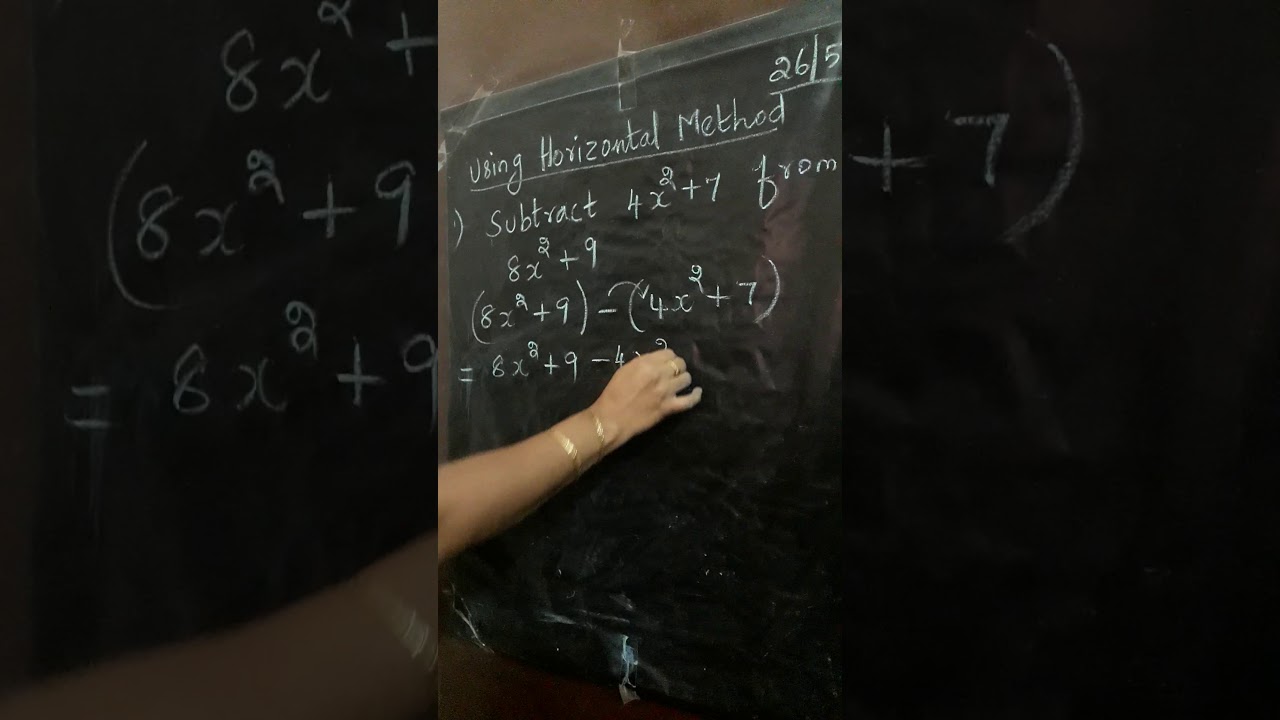 26/5
Using Horizontal Method
1) Subtract 4x²+7 from
8x²+9
(8x²+9)-(4x²+7)
= 8x²+9-4x²